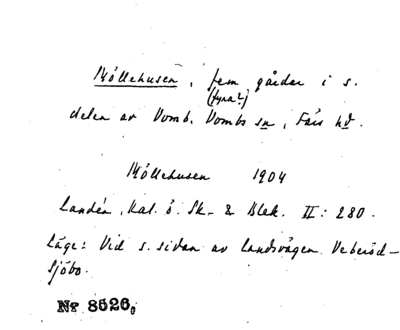 Möllehusen, fem gårdar i s.
(fyra?)
delen av Vomb, Vombs sn, Färs hd.
Möllehusen 1904
Landén, Kat. ö. Sk. & Blek. II: 280.
Läge: Vid s. sidan av landsvägen Veberöd–
Sjöbo.
Nr 8526,